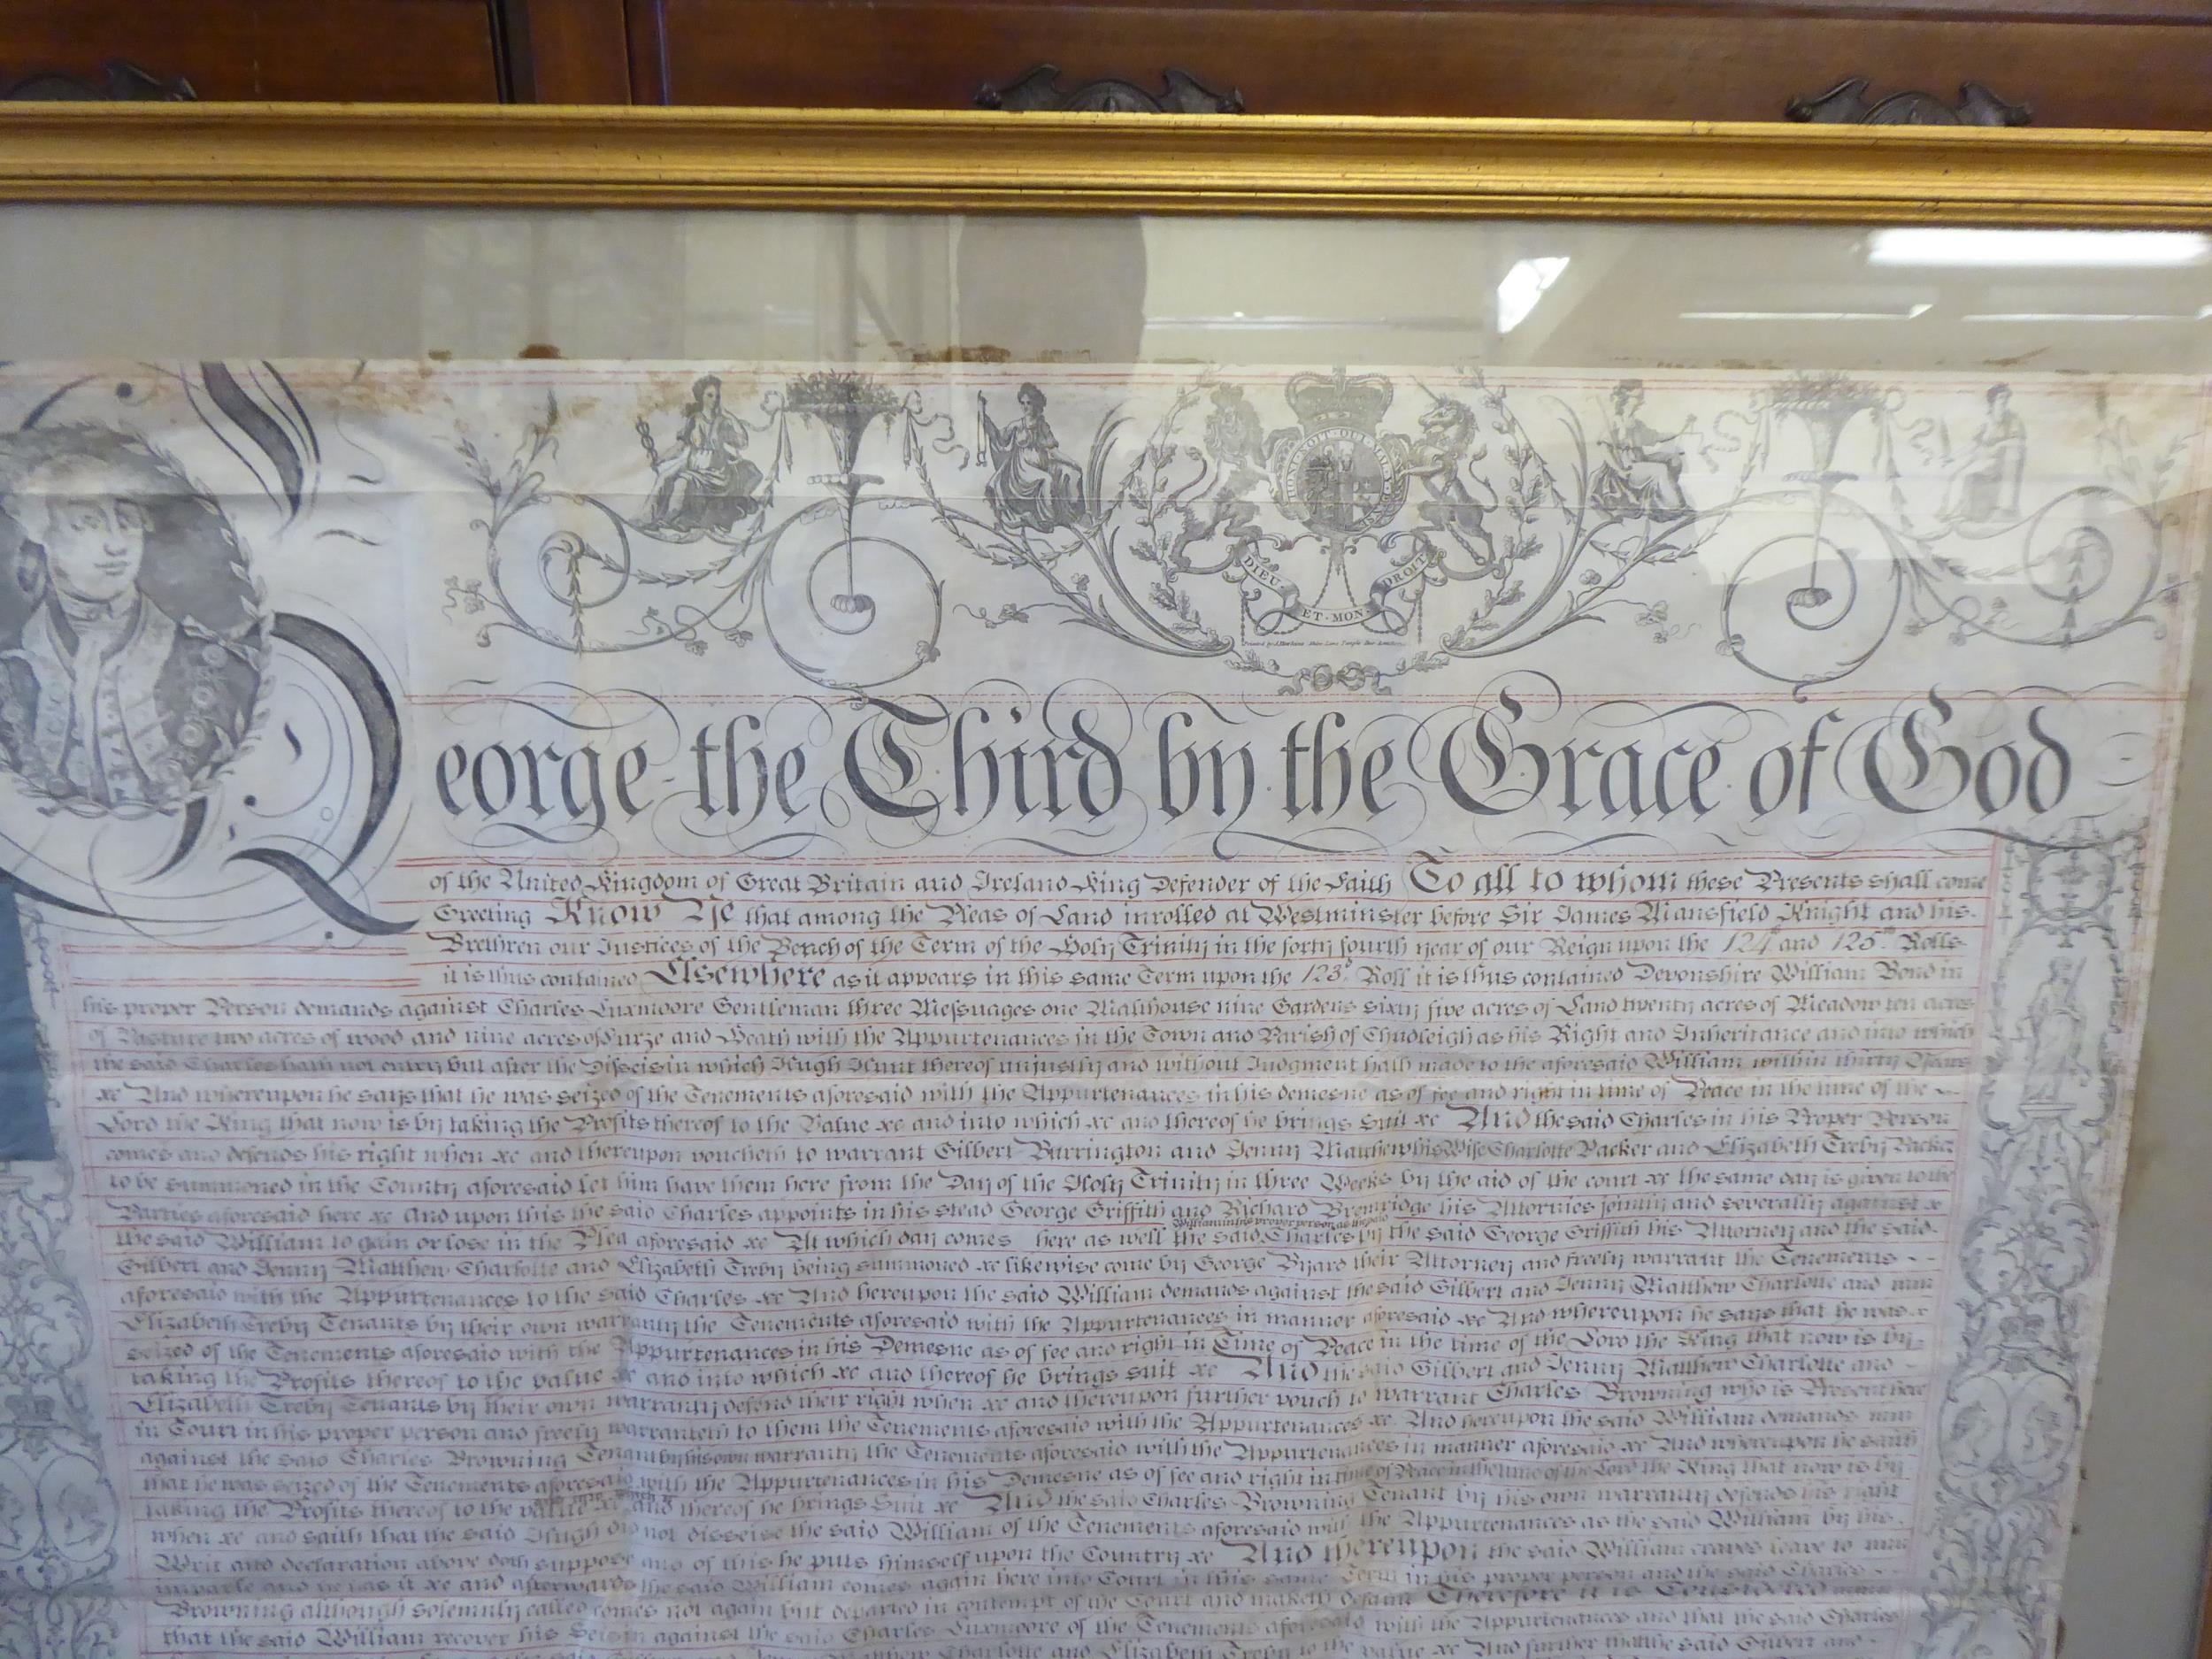 HONI SOIT QUI MAL Y PENSE
DIEU ET MON DROIT
George the Third by the Grace of God
of the United Kingdom of Great Britain and Ireland King Defender of the Faith To all to whom these Presents shall come
Greeting Know Ye that among the Pleas of Land inrolled at Westminster before Sir James Mansfield Knight and his
Brethren our Justices of the Bench of the Term of the Holy Trinity in the forty fourth year of our Reign upon the 124th and 125th Rolls
it is thus contained Elsewhere as it appears in this same Term upon the 123d Roll it is thus contained Devonshire William Bond in
his proper Person demands against Charles Luxmoore Gentleman three Messuages one Malthouse nine Gardens sixty five acres of Land twenty acres of Meadow ten acres
of Pasture two acres of wood and nine acres of Furze and Heath with the Appurtenances in the Town and Parish of Chudleigh as his Right and Inheritance and into which
the said Charles hath not entry but after the Disseisin which Hugh Hunt thereof unjustly and without Judgment hath made to the aforesaid William within thirty Years
&c And whereupon he says that he was seized of the Tenements aforesaid with the Appurtenances in his demesne as of fee and right in time of Peace in the time of the
Lord the King that now is by taking the Profits thereof to the Value &c and into which &c and thereof he brings Suit &c And the said Charles in his Proper Person
comes and defends his right when &c and thereupon voucheth to warrant Gilbert Burrington and Jenny Matthew his Wife Charlotte Packer and Elizabeth Treby Packer
to be summoned in the County aforesaid let him have them here from the Day of the Holy Trinity in three Weeks by the aid of the court &c the same day is given to the
Parties aforesaid here &c And upon this the said Charles appoints in his stead George Griffith and Richard Bromridge his Attornies jointly and severally against
William in his proper person as the said
the said William to gain or lose in the Plea aforesaid &c At which day comes here as well the said Charles by the said George Griffith his Attorney and the said
Gilbert and Jenny Matthew Charlotte and Elizabeth Treby being summoned &c likewise come by George Byard their Attorney and freely warrant the Tenements
aforesaid with the Appurtenances to the said Charles &c And hereupon the said William demands against the said Gilbert and Jenny Matthew Charlotte and
Elizabeth Treby Tenants by their own warranty the Tenements aforesaid with the Appurtenances in manner aforesaid &c And whereupon he says that he was
seized of the Tenements aforesaid with the Appurtenances in his Demesne as of fee and right in Time of Peace in the time of the Lord the King that now is by
taking the Profits thereof to the value &c and into which &c and thereof he brings suit &c And the said Gilbert and Jenny Matthew Charlotte and
Elizabeth Treby Tenants by their own warranty defend their right when &c and thereupon further vouch to warrant Charles Browning who is Present here
in Court in his proper person and freely warranteth to them the Tenements aforesaid with the Appurtenances &c And hereupon the said William demands
against the said Charles Browning Tenant by his own warranty the Tenements aforesaid with the Appurtenances in manner aforesaid &c And whereupon he saith
that he was seized of the Tenements aforesaid with the Appurtenances in his Demesne as of fee and right in time of Peace in the time of the Lord the King that now is by
taking the Profits thereof to the value &c and thereof he brings Suit &c And the said Charles Browning Tenant by his own warranty defends his right
when &c and saith that the said Hugh did not disseise the said William of the Tenements aforesaid with the Appurtenances as the said William by his
Writ and declaration above doth suppose and of this he puts himself upon the Country &c And thereupon the said William craves leave to
imparle and he has it &c and afterwards the said William comes again here into Court in this same Term in his proper person and the said Charles
Browning although solemnly called comes not again but departed in contempt of the Court and maketh default Therefore it is Considered
that the said William recover his Seisin against the said Charles Luxmoore of the Tenements aforesaid with the Appurtenances and that the said Charles
Charlotte and Elizabeth Treby to the value &c And further that the said Gilbert and